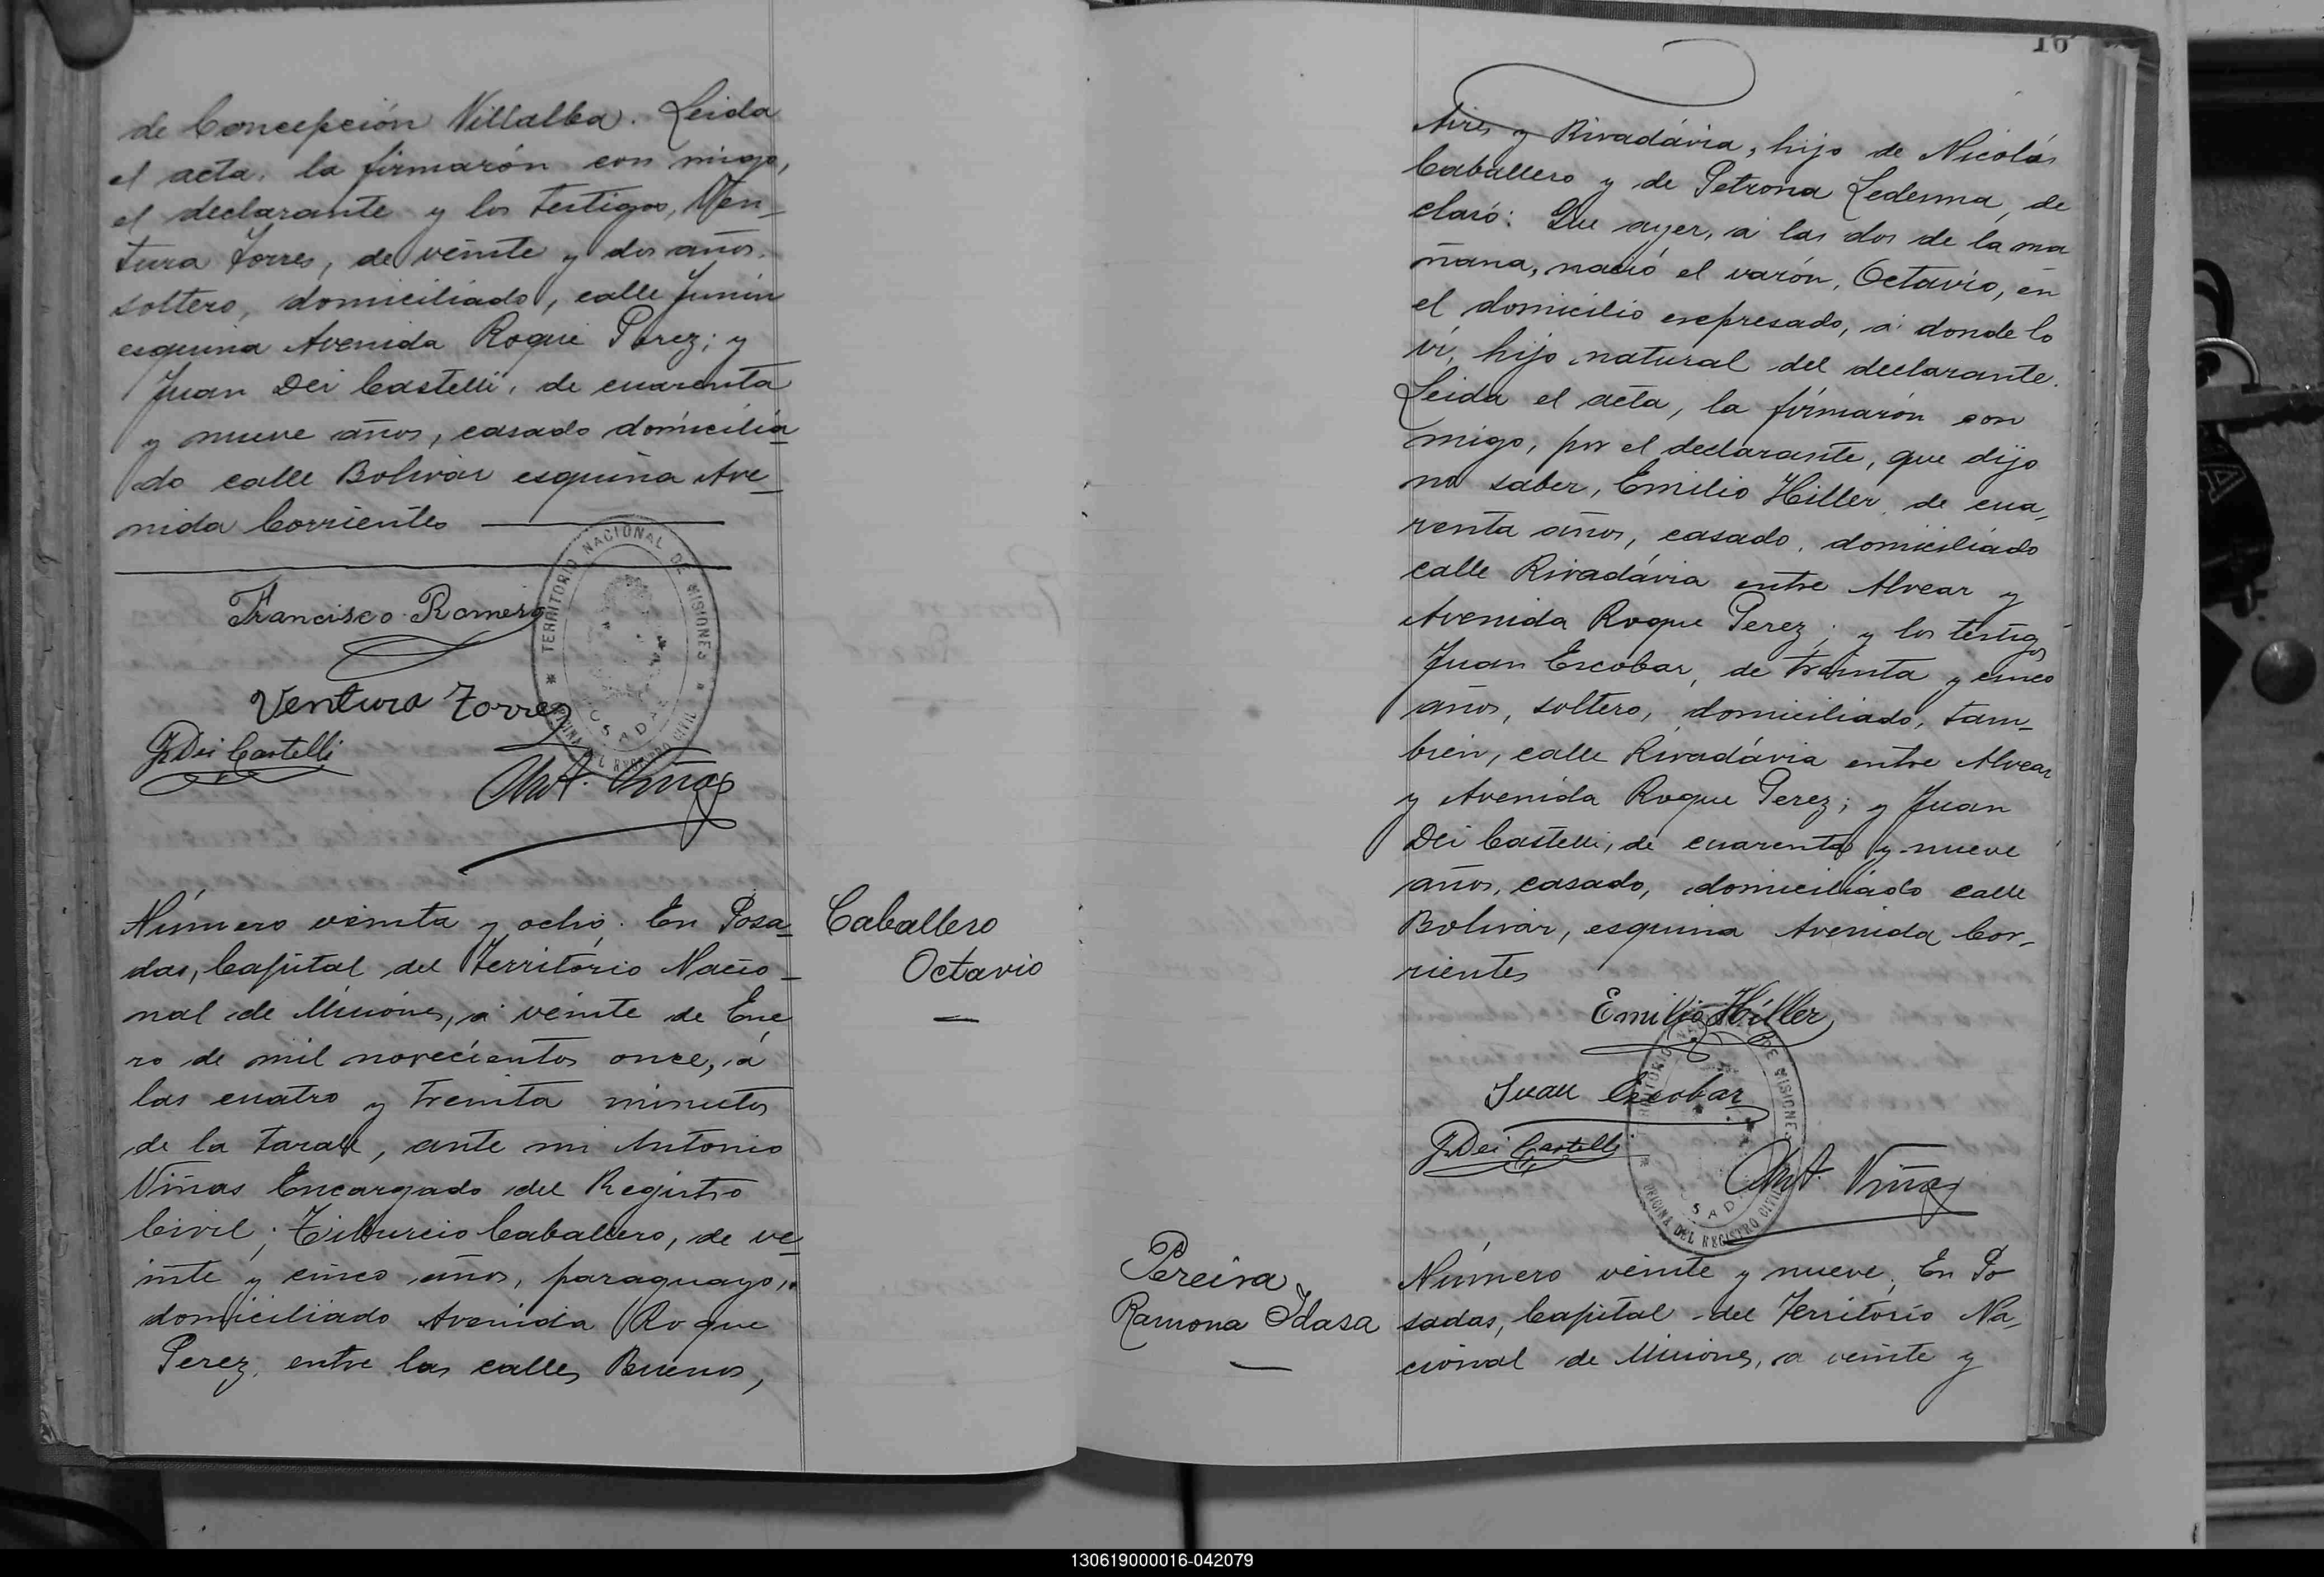 de Concepción Villalba. Leida
el acta, la firmarón con migo,
el declarante y los testigos, Ven_
tura Torres, de veinte y dos años,
soltero, domiciliado, calle Junin
esquina Avenida Roque Perez; y
Juan Dei Castelli, de cuarenta
y nueve años, casado domicilia_
do calle Bolivar esquina Ave_
nida Corrientes
Francisco Romero
Ventura Torres
J. Dei Castelli
Ant. Viñas
TERRITORIO NACIONAL DE MISIONES
OFICINA DEL REGISTRO CIVIL
Número veinta y ocho. En Posa_
das, Capital del Territorio Nacio_
nal de Misiones, a veinte de Ene
ro de mil novecientos once, á
las cuatro y treinta minutos
de la tarde, ante mi Antonio
Viñas Encargado del Registro
Civil; Tiburcio Caballero, de ve_
inte y cinco años, paraguayo,
domiciliado Avenida Roque
Perez, entre las calles Buenos,
Caballero
Octavio
16
Aires y Rivadávia, hijo de Nicolás
Caballero y de Petrona Ledesma, de
claró: Que ayer, a las dos de la ma
ñana, nació el varón, Octavio, en
el domicilio expresado, a donde lo
ví, hijo natural del declarante.
Leida el acta, la firmarón con
migo, por el declarante, que dijo
no saber, Emilio Hiller, de cua,
renta años, casado, domiciliado
calle Rivadávia entre Alvear y
Avenida Roque Perez; y los testigos
Juan Escobar, de treinta y cinco
años, soltero, domiciliado, tam_
bien, calle Rivadávia entre Alvear
y Avenida Roque Perez; y Juan
Dei Castelli, de cuarenta y nueve
años, casado, domiciliado calle
Bolivar, esquina Avenida Cor_
rientes
Emilio Hiller
Juan Escobar
J. Dei Castelli
Ant. Viñas
OFICINA DEL REGISTRO CIVIL
Pereira
Ramona Idasa
Número veinte y nueve. En Po
sadas, Capital del Territorio Na,
cional de Misiones, a veinte y
130619000016-042079